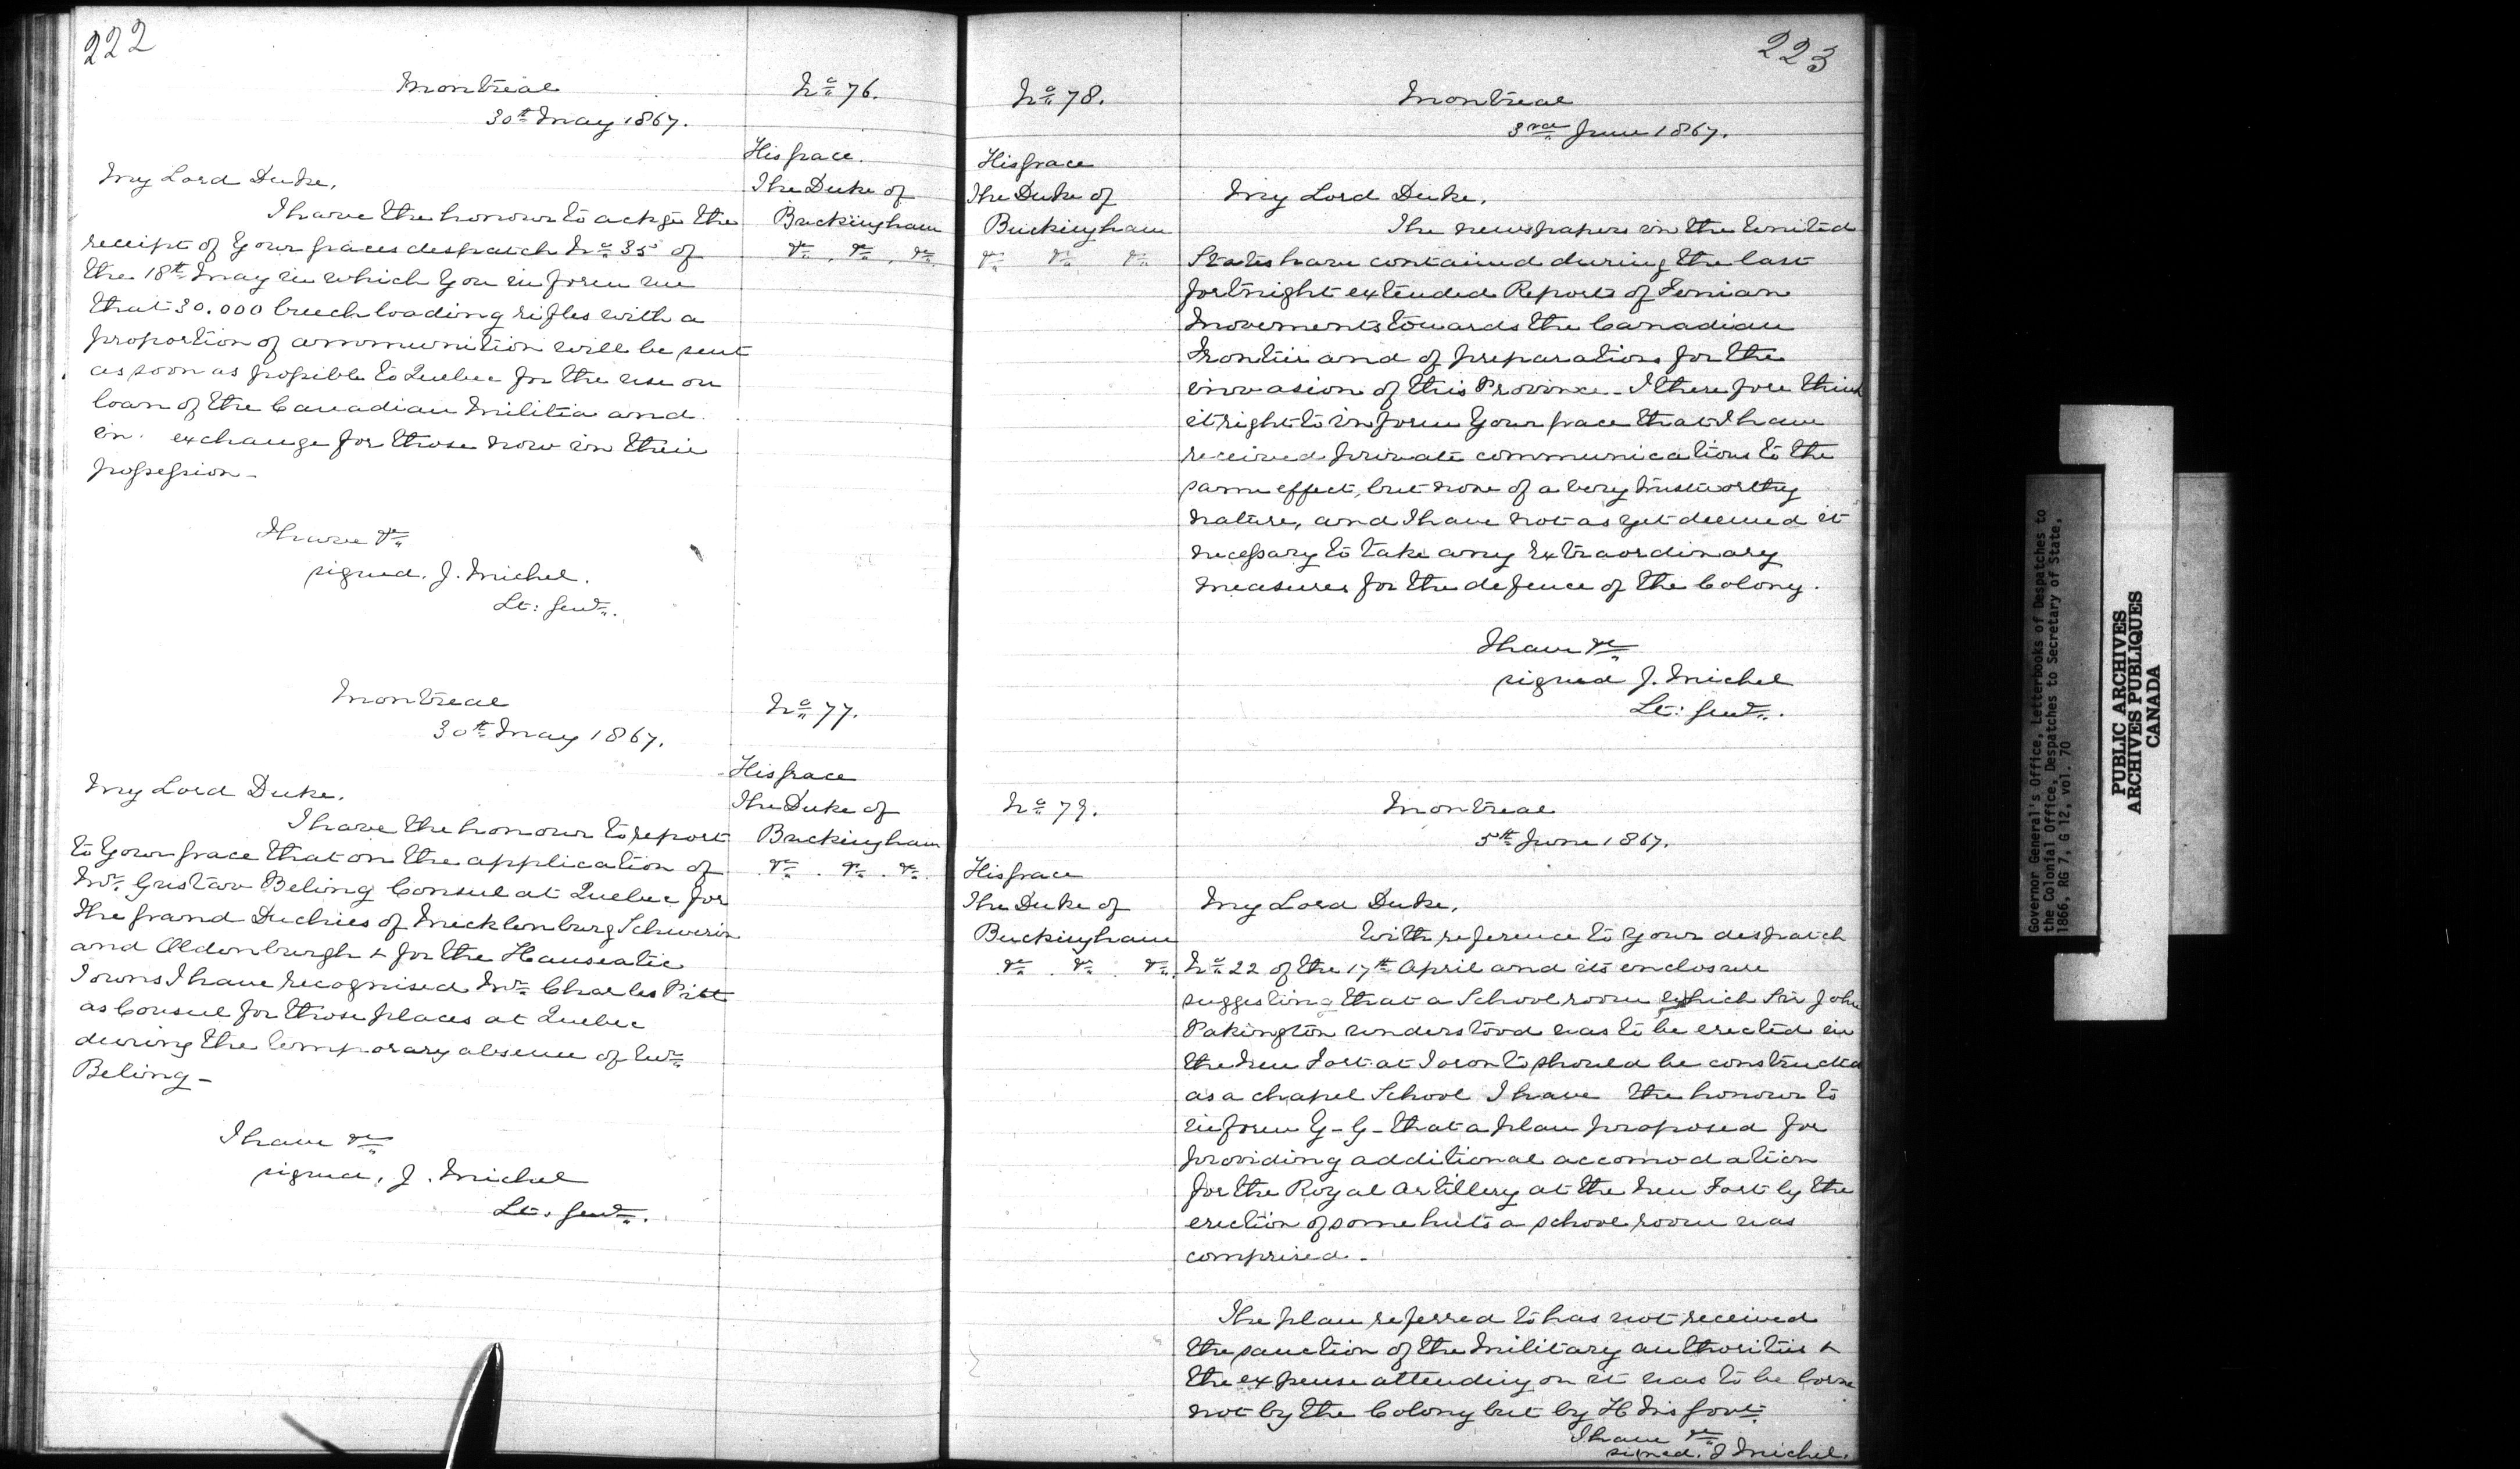 222
Montreal
30th May 1867.
No 76.
His Grace.
The Duke of
Buckingham
&c. &c. &c.
My Lord Duke,
I have the honour to ackge the
receipt of Your Graces despatch No 35 of
the 18th May in which You inform me
that 30.000 breech loading rifles with a
proportion of ammunition will be sent
as soon as possible to Quebec for the use on
loan of the Canadian Militia and
in exchange for those now in their
possession -
I have &c
signed. J. Michel.
Lt: Genl.
Montreal
30th May 1867.
No 77.
His Grace
The Duke of
Buckingham
&c. &c. &c.
My Lord Duke.
I have the honour to report
to Your Grace that on the application of
Mr. Gustav Beling Consul at Quebec for
the Grand Duchies of Mecklenburg Schwerin
and Oldenburgh & for the Hanseatic
Towns I have recognised Mr. Charles Pitt
as Consul for those places at Quebec
during the temporary absence of Mr.
Beling -
I have &c
signed, J. Michel
Lt. Genl.
223
No 78.
Montreal
3rd June 1867.
His Grace
The Duke of
Buckingham
&c &c &c
My Lord Duke,
The newspapers in the United
States have contained during the last
fortnight extended Reports of Fenian
Movements towards the Canadian
Frontier and of preparations for the
invasion of this Province - I therefore think
it right to inform Your Grace that I have
received private communications to the
same effect, but none of a very trustworthy
nature, and I have not as yet deemed it
necessary to take any extraordinary
measures for the defence of the Colony.
I have &c
signed J. Michel
Lt: Genl.
No 79.
Montreal
5th June 1867.
His Grace
The Duke of
Buckingham
&c. &c. &c.
My Lord Duke,
With reference to your despatch
No 22 of the 17th April and its enclosure
suggesting that a School room which Sir John
Pakington understood was to be erected in
the New Fort at Toronto should be constructed
as a chapel School I have the honour to
inform Y-G- that a plan proposed for
providing additional accomodation
for the Royal Artillery at the New Fort by the
erection of some huts a school room was
comprised -
The plan referred to has not received
the sanction of the Military authorities &
the expense attending on it was to be borne
not by the Colony but by H Ms Govt.
I have &c
signed. J Michel.
Governor General's Office, Letterbooks of Despatches to
the Colonial Office, Despatches to Secretary of State,
1866, RG 7, G 12, vol. 70
PUBLIC ARCHIVES
ARCHIVES PUBLIQUES
CANADA